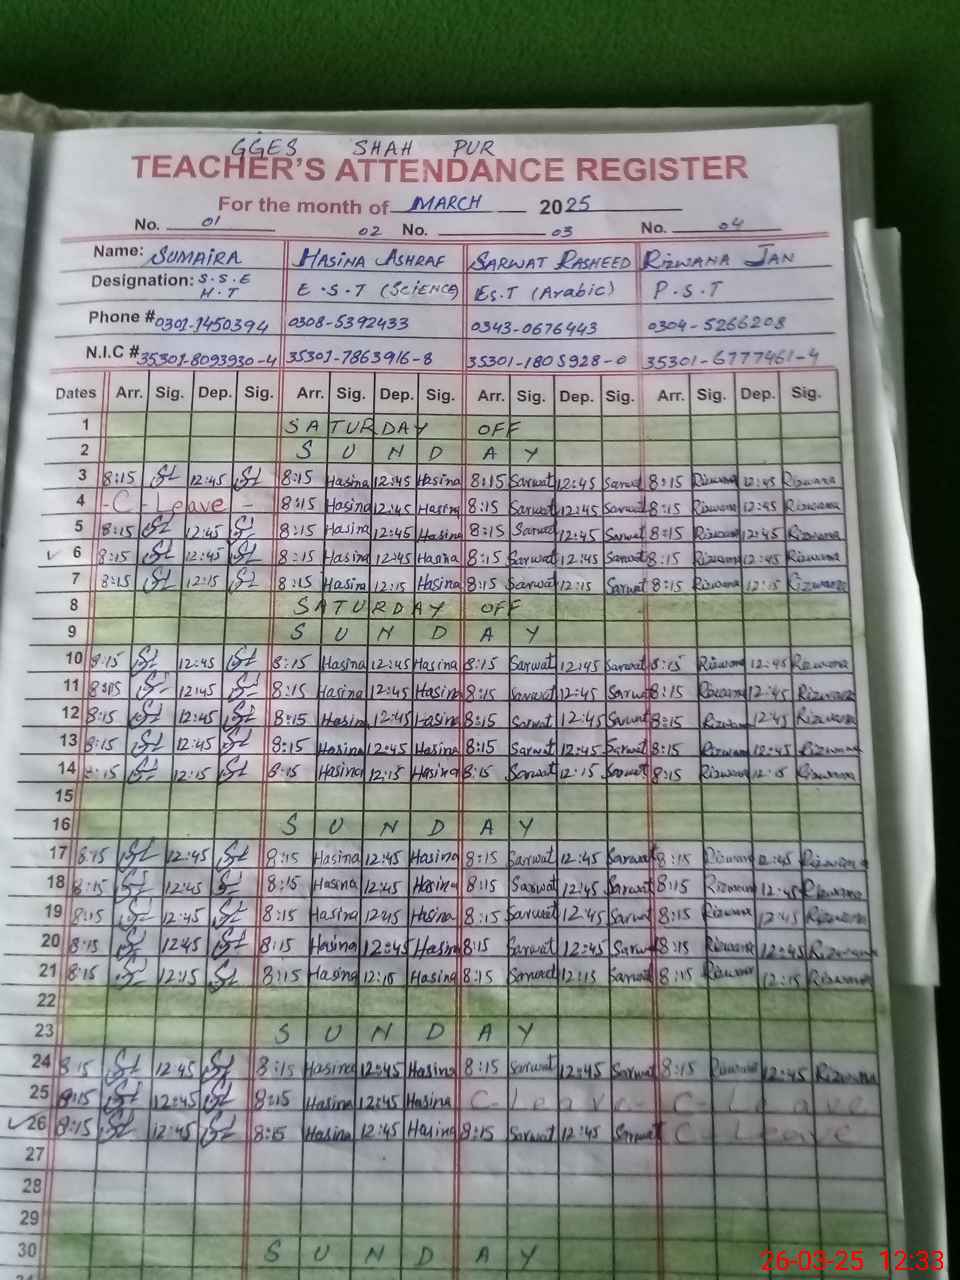 GGES SHAH PUR
TEACHER'S ATTENDANCE REGISTER
For the month of MARCH 2025
No. 01 02 No. 03 No. 04
Name: SUMAIRA HASINA ASHRAF SARWAT RASHEED RIZWANA JAN
Designation: S.S.E H.T E.S.T (Science) Es.T (Arabic) P.S.T
Phone # 0301-1450394 0308-5392433 0343-0676443 0304-5266208
N.I.C # 35301-8093930-4 35301-7863916-8 35301-1805928-0 35301-6777461-4
Dates Arr. Sig. Dep. Sig. Arr. Sig. Dep. Sig. Arr. Sig. Dep. Sig. Arr. Sig. Dep. Sig.
1 SATURDAY OFF
2 SUNDAY
3 8:15 12:45 8:15 Hasina 12:45 Hasina 8:15 Sarwat 12:45 Sarwat 8:15 Rizwana 12:45 Rizwana
4 -C- Leave - 8:15 Hasina 12:45 Hasina 8:15 Sarwat 12:45 Sarwat 8:15 Rizwana 12:45 Rizwana
5 8:15 12:45 8:15 Hasina 12:45 Hasina 8:15 Sarwat 12:45 Sarwat 8:15 Rizwana 12:45 Rizwana
6 8:15 12:45 8:15 Hasina 12:45 Hasina 8:15 Sarwat 12:45 Sarwat 8:15 Rizwana 12:45 Rizwana
7 8:15 12:15 8:15 Hasina 12:15 Hasina 8:15 Sarwat 12:15 Sarwat 8:15 Rizwana 12:15 Rizwana
8 SATURDAY OFF
9 SUNDAY
10 8:15 12:45 8:15 Hasina 12:45 Hasina 8:15 Sarwat 12:45 Sarwat 8:15 Rizwana 12:45 Rizwana
11 8:15 12:45 8:15 Hasina 12:45 Hasina 8:15 Sarwat 12:45 Sarwat 8:15 Rizwana 12:45 Rizwana
12 8:15 12:45 8:15 Hasina 12:45 Hasina 8:15 Sarwat 12:45 Sarwat 8:15 Rizwana 12:45 Rizwana
13 8:15 12:45 8:15 Hasina 12:45 Hasina 8:15 Sarwat 12:45 Sarwat 8:15 Rizwana 12:45 Rizwana
14 8:15 12:15 8:15 Hasina 12:15 Hasina 8:15 Sarwat 12:15 Sarwat 8:15 Rizwana 12:15 Rizwana
15
16 SUNDAY
17 8:15 12:45 8:15 Hasina 12:45 Hasina 8:15 Sarwat 12:45 Sarwat 8:15 Rizwana 12:45 Rizwana
18 8:15 12:45 8:15 Hasina 12:45 Hasina 8:15 Sarwat 12:45 Sarwat 8:15 Rizwana 12:45 Rizwana
19 8:15 12:45 8:15 Hasina 12:45 Hasina 8:15 Sarwat 12:45 Sarwat 8:15 Rizwana 12:45 Rizwana
20 8:15 12:45 8:15 Hasina 12:45 Hasina 8:15 Sarwat 12:45 Sarwat 8:15 Rizwana 12:45 Rizwana
21 8:15 12:15 8:15 Hasina 12:15 Hasina 8:15 Sarwat 12:15 Sarwat 8:15 Rizwana 12:15 Rizwana
22
23 SUNDAY
24 8:15 12:45 8:15 Hasina 12:45 Hasina 8:15 Sarwat 12:45 Sarwat 8:15 Rizwana 12:45 Rizwana
25 8:15 12:45 8:15 Hasina 12:45 Hasina C-Leave- C-Leave
26 8:15 12:45 8:15 Hasina 12:45 Hasina 8:15 Sarwat 12:45 Sarwat C-Leave
27
28
29
30 SUNDAY
26-03-25 12:33